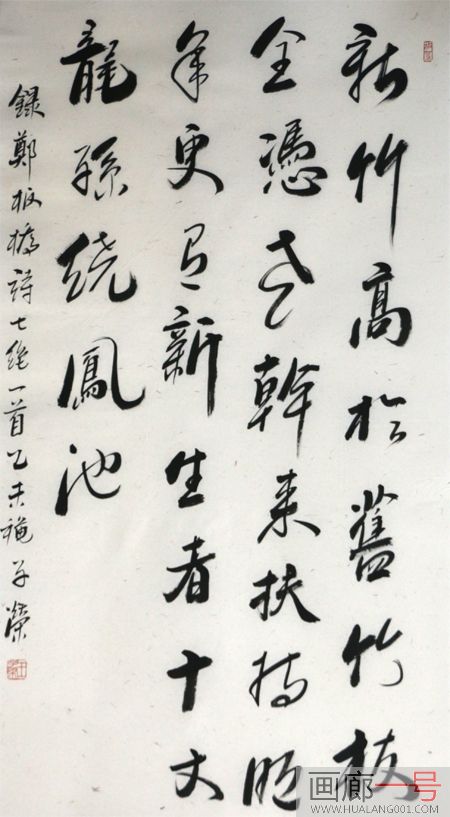 新竹高於舊竹枝
全憑老幹来扶持明
年更有新生者十丈
龍孫繞鳳池
錄鄭板橋詩七絕一首乙未穐子榮
画廊一号
WWW.HUALANG001.COM